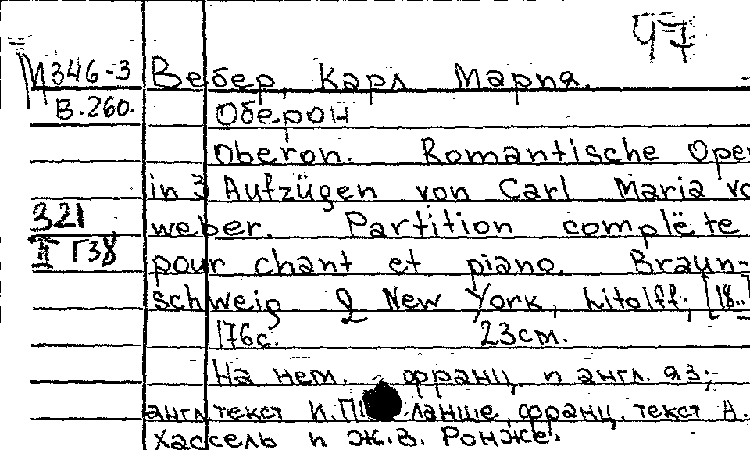 47
М346-3 Вебер, Карл Мария.
В.260. Оберон
Oberon. Romantische Ope
in 3 Aufzügen von Carl Maria vo
321 weber. Partition complëte
II Г38 pour chant et piano. Braun-
schweig & New York, Litolff, [18..]
176с. 23см.
На нем. франц. и англ. яз;
англ текст И.П ланше, франц. текст А.
Хассель и Ж.В. Ронже.